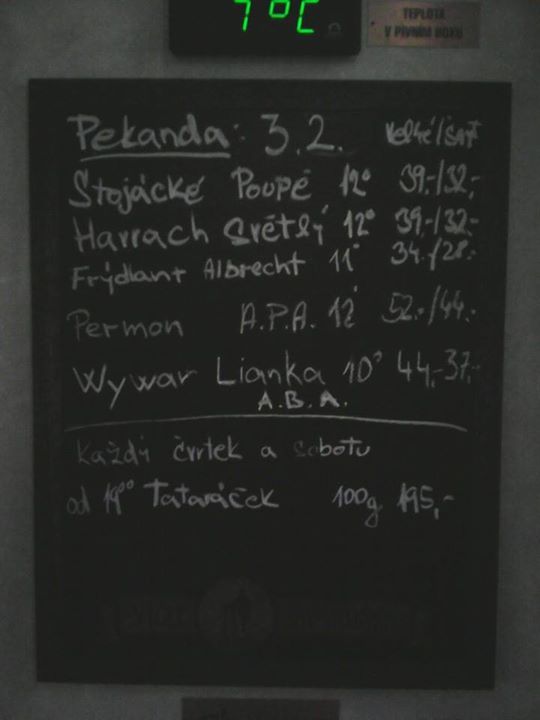 7°C
TEPLOTA
V PIVNÍM BOXU
Pekanda: 3.2. velké/šnyt
Stojácké Poupě 12° 39,-/32,-
Harrach Světlý 12° 39,-/32,-
Frýdlant Albrecht 11° 34,-/28,-
Permon A.P.A. 12° 52,-/44,-
Wywar Lianka 10° 44,-37,-
A.B.A.
Každý čvrtek a sobotu
od 19⁰⁰ Tataráček 100g 195,-